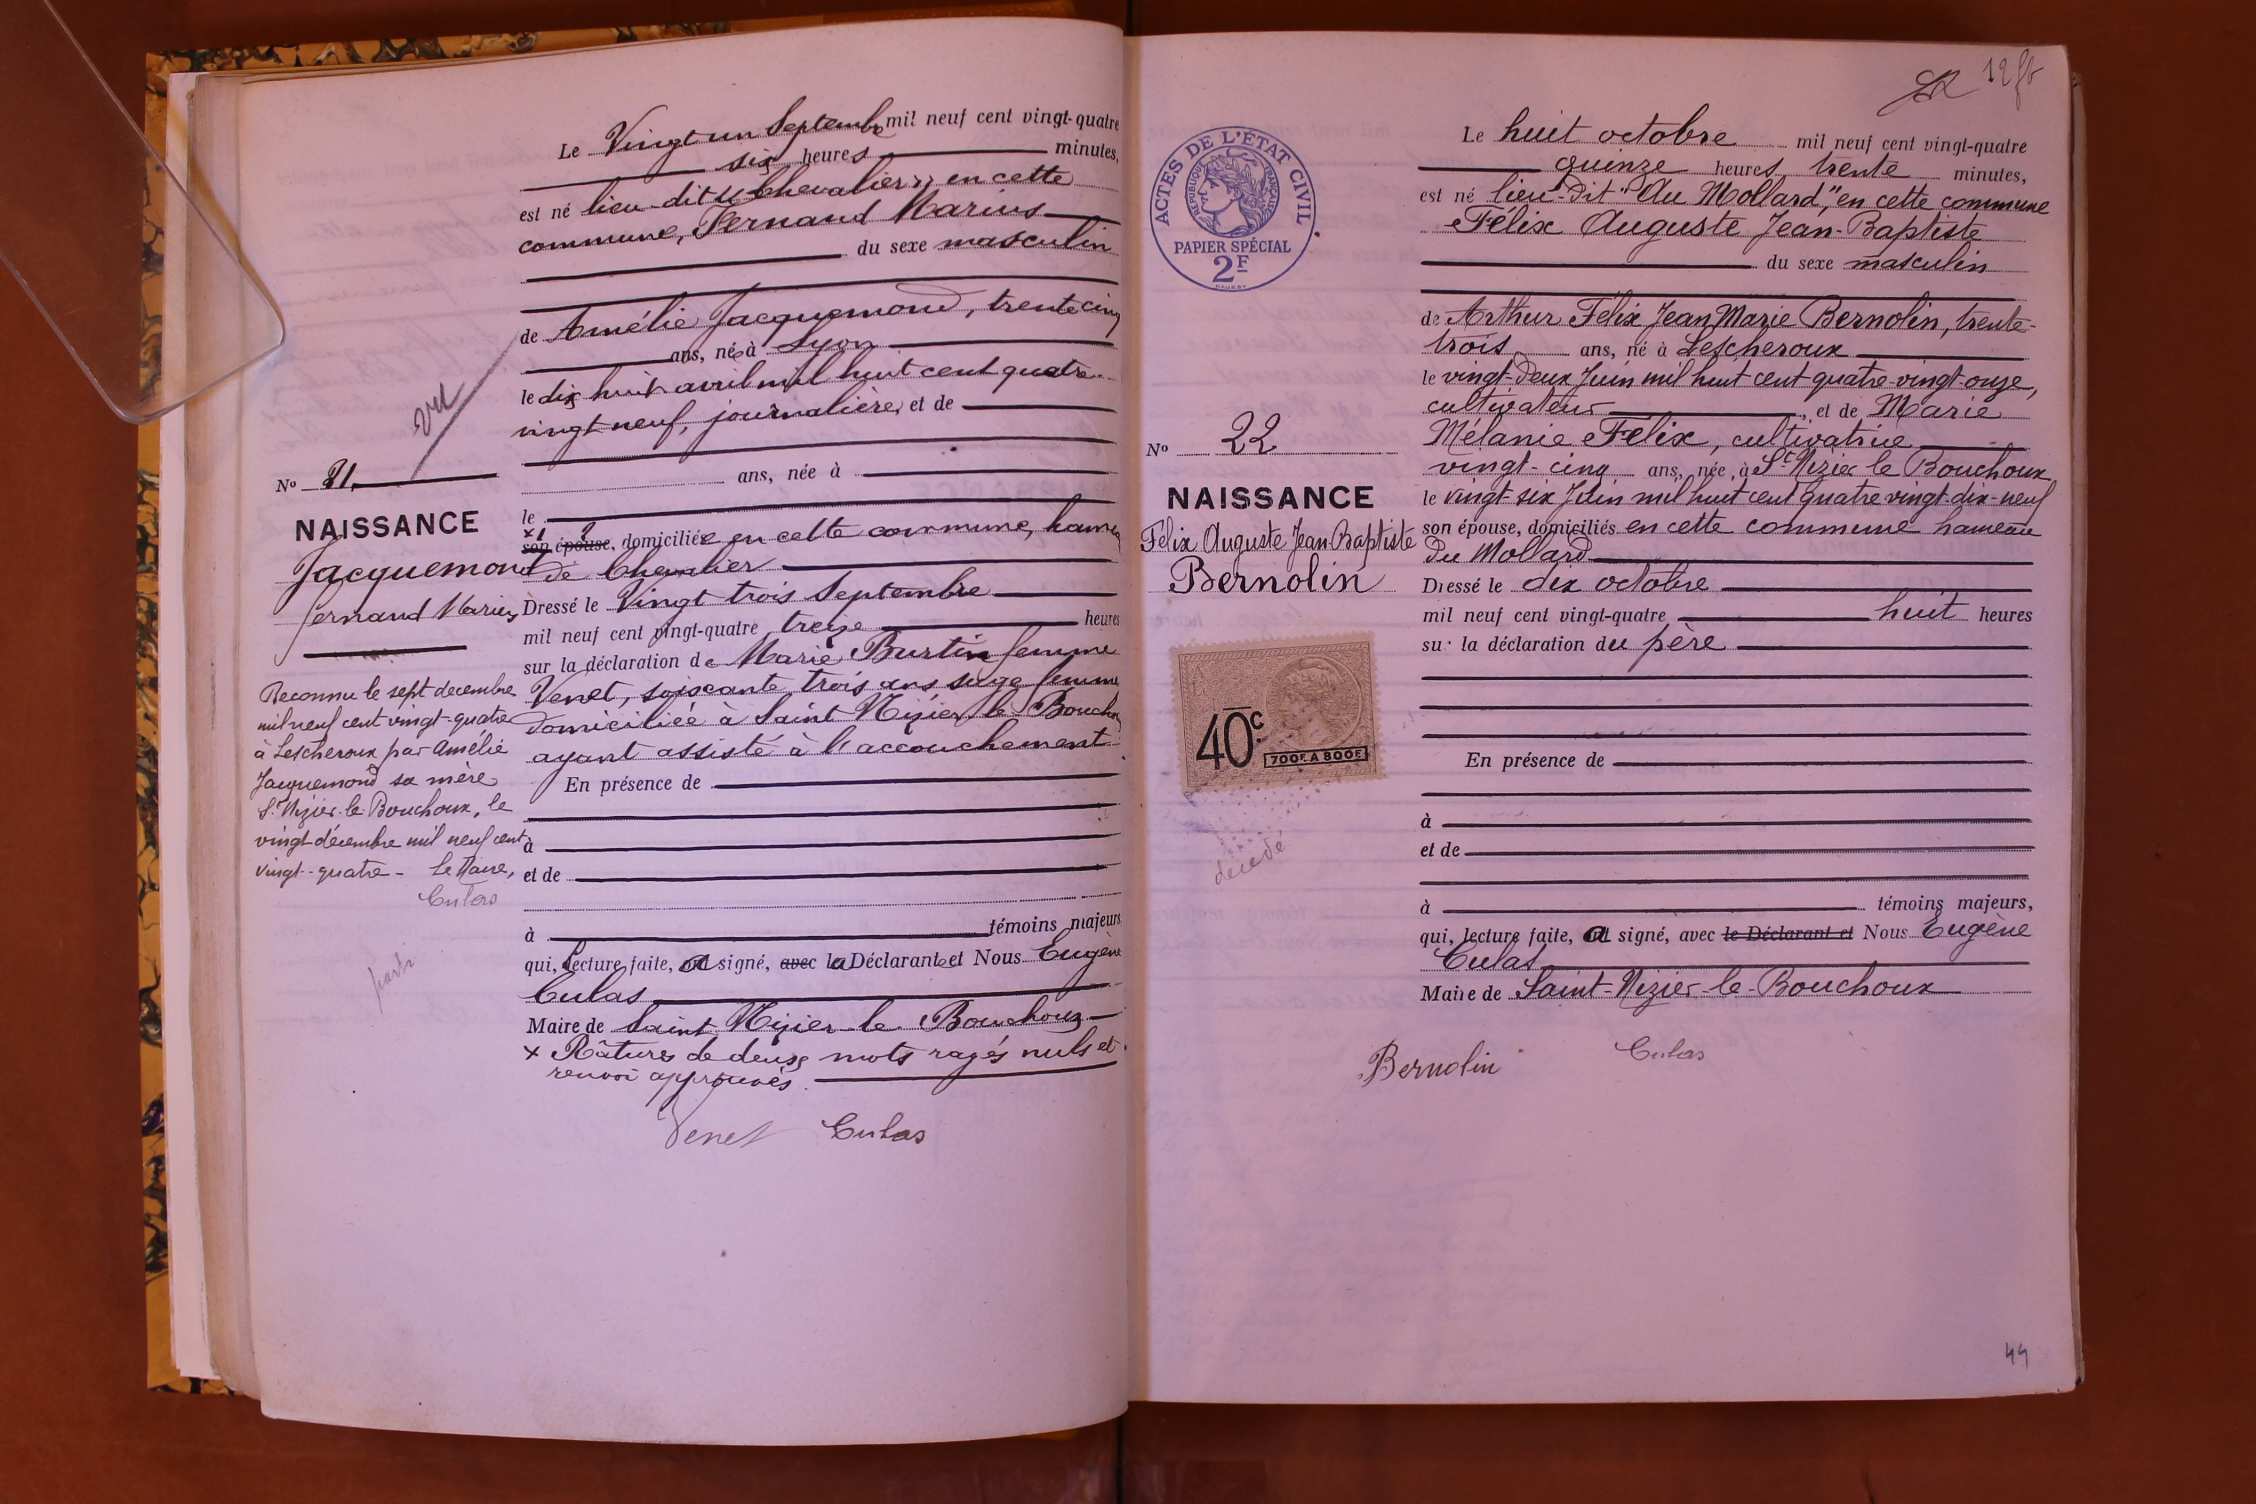 Le Vingt un Septembre mil neuf cent vingt-quatre
six heures minutes,
est né lieu-dit "Chevalier" en cette
commune, Fernand Marius
du sexe masculin
de Amélie Jacquemond, trente cinq
ans, née à Lyon
le dix huit avril mil huit cent quatre-
vingt neuf, journalière, et de
ans, née à
le
son épouse, domiciliée en cette commune, hameau
de Chevalier
Dressé le Vingt trois Septembre
mil neuf cent vingt-quatre treize heures
sur la déclaration de Marie Burtin femme
Venet, soixante trois ans sage femme
domiciliée à Saint Nizier le Bouchoux
ayant assisté à l'accouchement
En présence de
à
et de
à témoins majeurs
qui, lecture faite, a signé, avec la Déclarante et Nous Eugène
Culas
Maire de Saint Nizier le Bouchoux
x Râtures de deux mots rayés nuls et
renvoi approuvés.
Venet Culas
vu
No 21
NAISSANCE
Jacquemond
Fernand Marius
Reconnu le sept decembre
mil neuf cent vingt-quatre
à Lescheroux par Amélie
Jacquemond sa mère
St Nizier-le-Bouchoux, le
vingt décembre mil neuf cent
vingt-quatre - Le Maire,
Culas
parti
12
ACTES DE L'ÉTAT CIVIL
RÉPUBLIQUE FRANÇAISE
PAPIER SPÉCIAL
2F
No 22
NAISSANCE
Félix Auguste Jean Baptiste
Bernolin
40c
700F. A 800F.
décédé
Le huit octobre mil neuf cent vingt-quatre
quinze heures, trente minutes,
est né lieu-dit "Au Mollard", en cette commune
Félix Auguste Jean-Baptiste
du sexe masculin
de Arthur Félix Jean Marie Bernolin, trente-
trois ans, né à Lescheroux
le vingt-deux Juin mil huit cent quatre-vingt-onze,
cultivateur, et de Marie
Mélanie Félix, cultivatrice
vingt-cinq ans, née à St Nizier le Bouchoux
le vingt-six Juin mil huit cent quatre vingt-dix-neuf
son épouse, domiciliés en cette commune hameau
du Mollard
Dressé le dix octobre
mil neuf cent vingt-quatre huit heures
sur la déclaration du père
En présence de
à
et de
à témoins majeurs,
qui, lecture faite, a signé, avec le Déclarant et Nous Eugène
Culas
Maire de Saint-Nizier-le-Bouchoux
Bernolin Culas
44